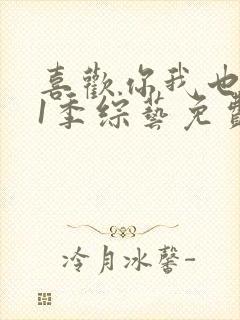 喜歡你我也
1季綜藝免費
冷月冰馨-